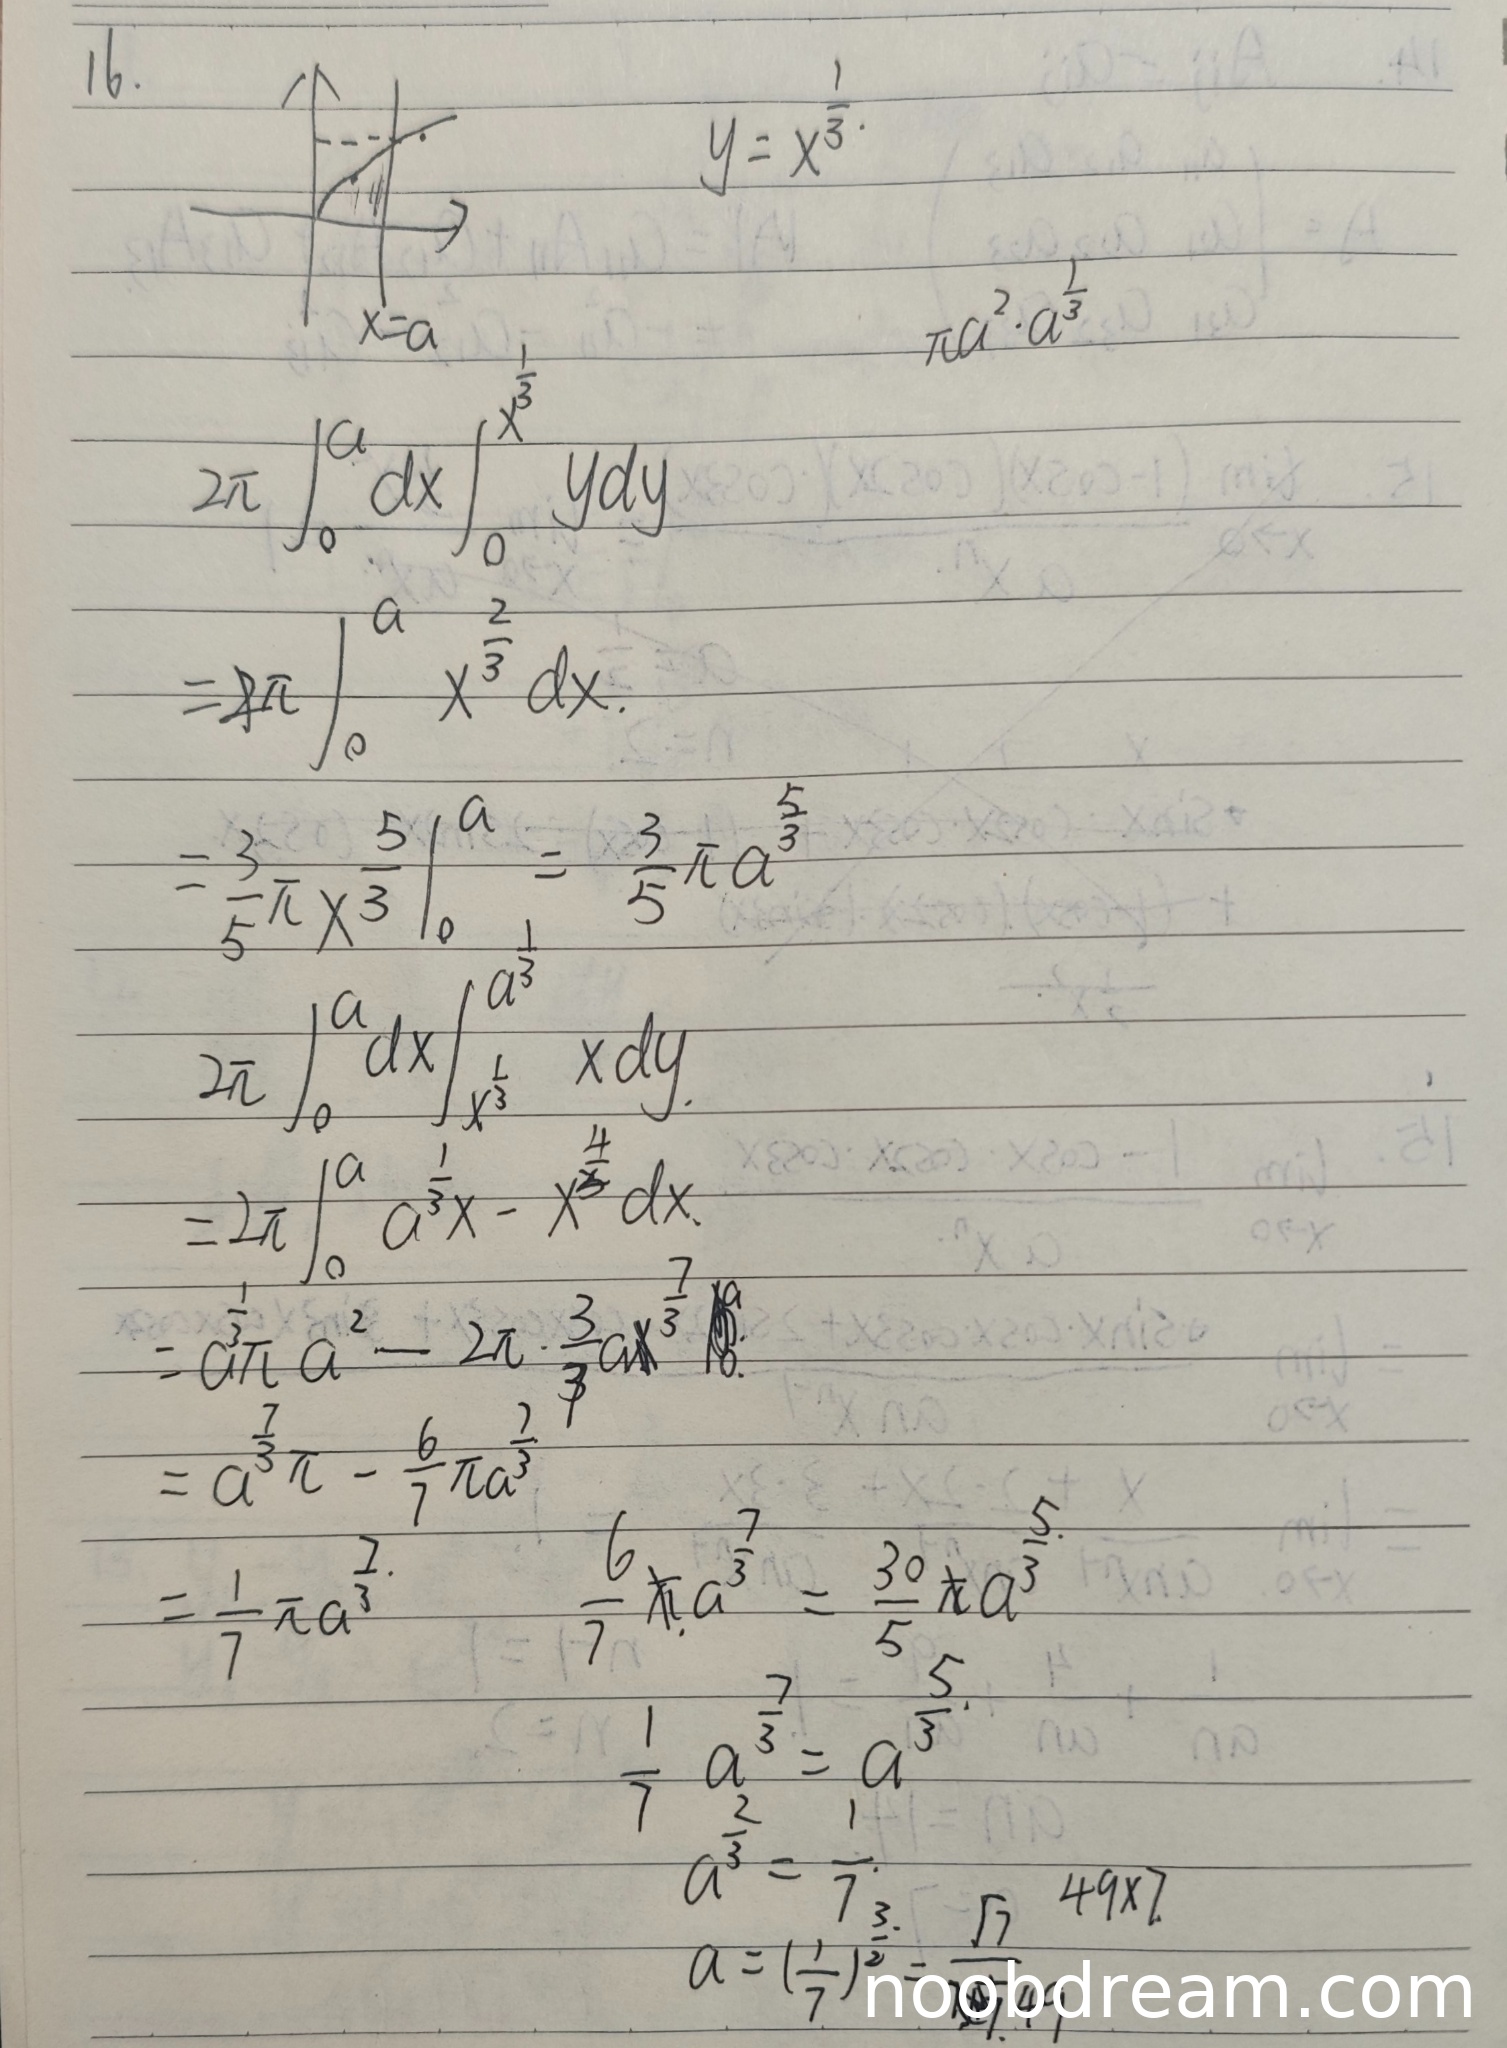 16.
y = x^{1/3}.
x=a
πa²·a^{1/3}
2π∫₀^a dx ∫₀^{x^{1/3}} ydy
= π∫₀^a x^{2/3} dx.
= 3/5 π x^{5/3} |₀^a = 3/5 π a^{5/3}
2π∫₀^a dx ∫_{x^{1/3}}^{a^{1/3}} xdy.
= 2π∫₀^a a^{1/3}x - x^{4/3} dx.
= a^{1/3}π a² — 2π·3/7 a^{7/3}
= a^{7/3}π - 6/7 πa^{7/3}
= 1/7 πa^{7/3}. 6/7 πa^{7/3} = 30/5 πa^{5/3}.
1/7 a^{7/3} = a^{5/3}.
a^{2/3} = 1/7.
49×7.
a = (1/7)^{3/2} = √7/49
noobdream.com